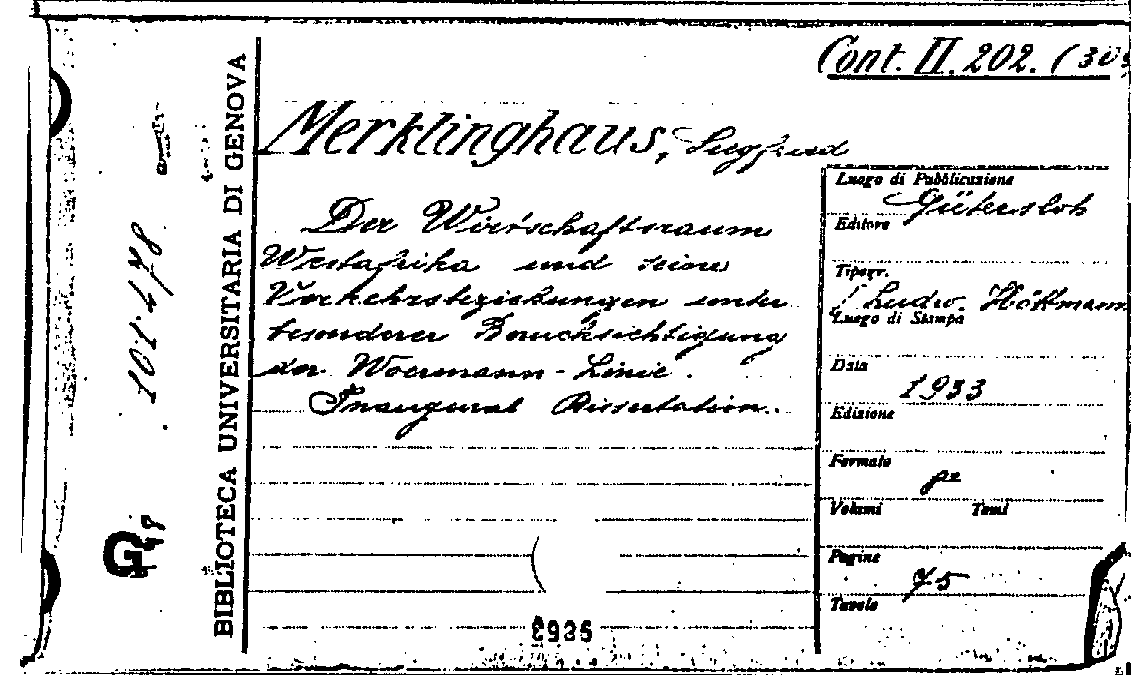 Cont. II. 202. (30
Merklinghaus, Siegfried
Der Wirtschaftsraum
Westafrika und seine
Verkehrsbeziehungen unter
besonderer Berucksichtigung
der Woermann-Linie.
Inaugural Dissertation.
Luogo di Pubblicazione
Gütersloh
Editore
Tipogr.
Ludw. Höttmann
Luogo di Stampa
Data
1933
Edizione
Formato
8º
Volumi Tomi
Pagine
95
Tavole
BIBLIOTECA UNIVERSITARIA DI GENOVA
G